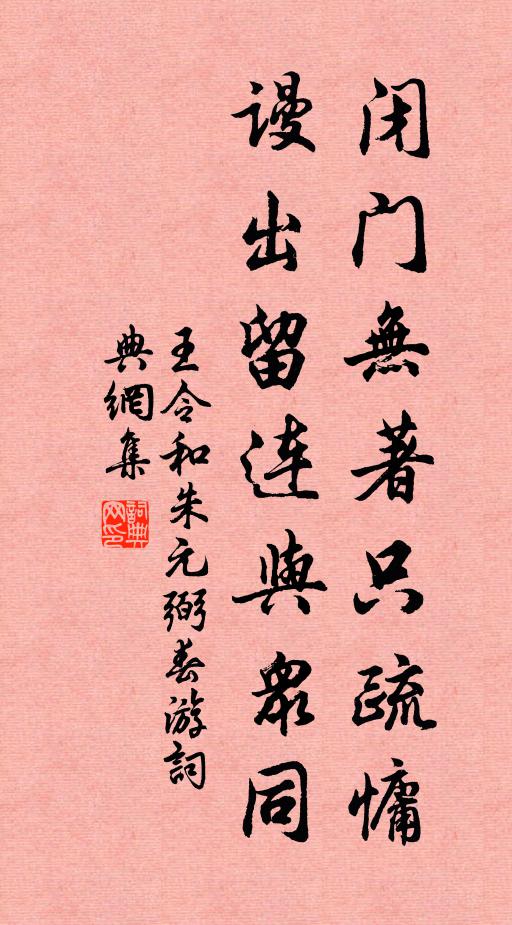 闭门無著只疏慵
谩出留连與衆同
王令和朱元弼春游詞
典網集
詞典网印